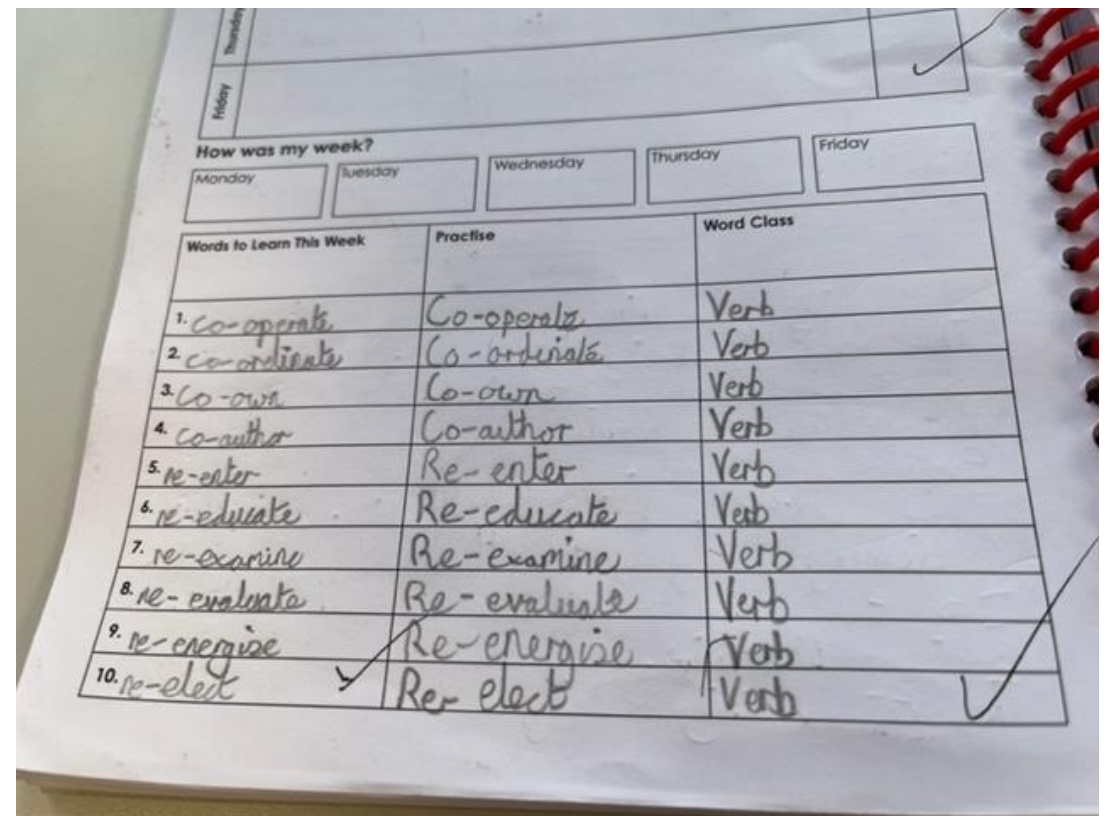 Thursday
Friday
How was my week?
Monday Tuesday Wednesday Thursday Friday
Words to Learn This Week Practise Word Class
1. co-operate Co-operate Verb
2. co-ordinate Co-ordinate Verb
3. co-own Co-own Verb
4. co-author Co-author Verb
5. re-enter Re-enter Verb
6. re-educate Re-educate Verb
7. re-examine Re-examine Verb
8. re-evaluate Re-evaluate Verb
9. re-energise Re-energise Verb
10. re-elect Re-elect Verb